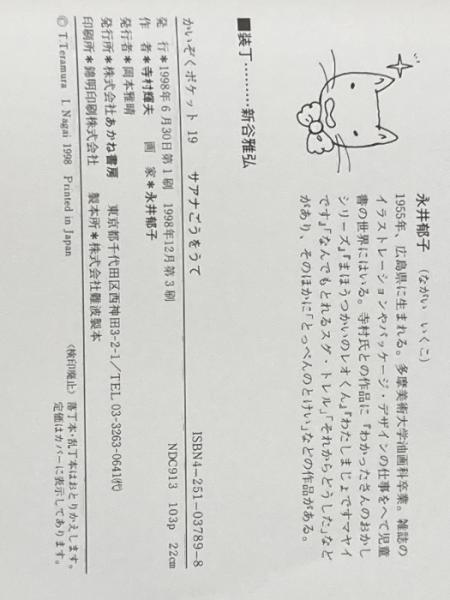 永井郁子（ながい いくこ）
1955年、広島県に生まれる。多摩美術大学油画科卒業。雑誌の
イラストレーションやパッケージ・デザインの仕事をへて児童
書の世界にはいる。寺村氏との作品に『わかったさんのおかし
シリーズ』『まほうつかいのレオくん』『わたしまじょですマヤイ
です』『なんでもとれるスグ・トレル』『それからどうした』など
があり、そのほかに『とっぺんのとけい』などの作品がある。
■装丁………新谷雅弘
かいぞくポケット 19　サアナごうをうて
ISBN4-251-03789-8
発　行＊1998年6月30日第1刷　1998年12月第3刷
NDC913　103p　22cm
作　者＊寺村輝夫　画　家＊永井郁子
発行者＊岡本雅晴
発行所＊株式会社あかね書房　東京都千代田区西神田3-2-1／TEL 03-3263-0641㈹
印刷所＊錦明印刷株式会社　製本所＊株式会社難波製本
© T.Teramura I. Nagai 1998 Printed in Japan
〈検印廃止〉落丁本・乱丁本はおとりかえします。
定価はカバーに表示してあります。